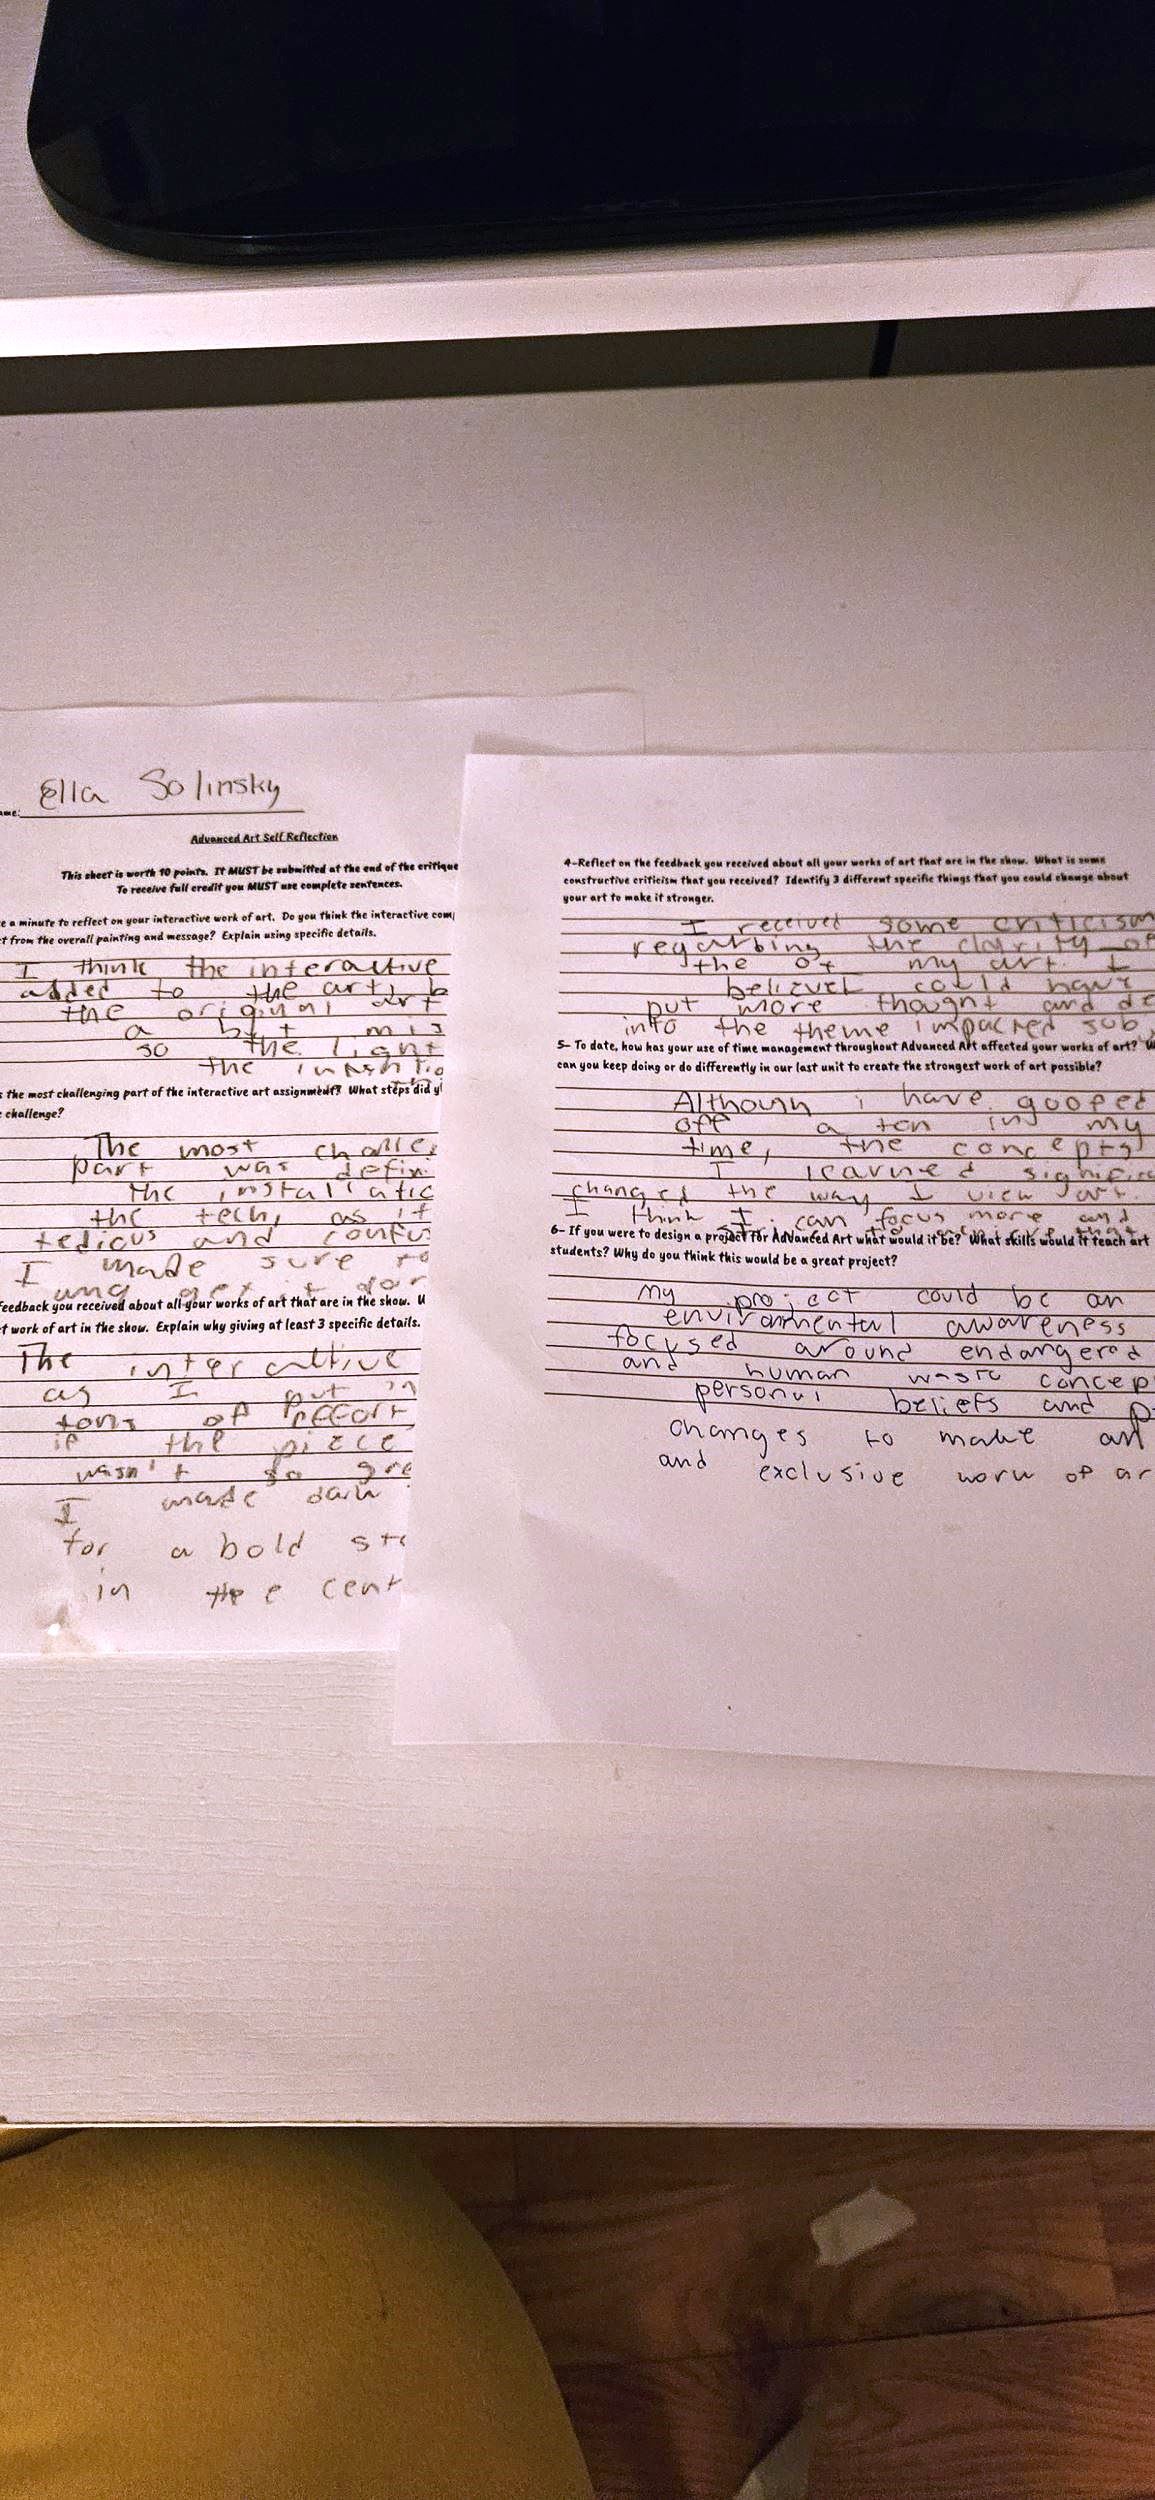 Ella Solinsky
ame:
Advanced Art Self Reflection
This sheet is worth 10 points. It MUST be submitted at the end of the critique
To receive full credit you MUST use complete sentences.
e a minute to reflect on your interactive work of art. Do you think the interactive com
t from the overall painting and message? Explain using specific details.
I think the interactive
added to the art, b
the original art
a bit mis
so the light
the
s the most challenging part of the interactive art assignment? What steps did y
challenge?
The most challe
part was defin
the installatio
the tech, as it
tedious and confus
I made sure to
feedback you received about all your works of art that are in the show. W
t work of art in the show. Explain why giving at least 3 specific details.
The interactive
as I put in
tons of effort
if the piece
wasn't so gre
I made dark
for a bold
in the cent
4-Reflect on the feedback you received about all your works of art that are in the show. What is some
constructive criticism that you received? Identify 3 different specific things that you could change about
your art to make it stronger.
I received some criticism
regarbing the clarity of
the of my art. I
believe I could have
put more thought and de
into the theme impacted sub
5- To date, how has your use of time management throughout Advanced Art affected your works of art? W
can you keep doing or do differently in our last unit to create the strongest work of art possible?
Although i have goofed
off a ton ing my
time, the concepts
I learned signific
changed the way I view art.
I think I can focus more and
6- If you were to design a project for Advanced Art what would it be? What skills would it teach art
students? Why do you think this would be a great project?
My project could be an
environmental awareness
focused around endangered
and human waste concep
personal beliefs and p
changes to make an
and exclusive work of ar